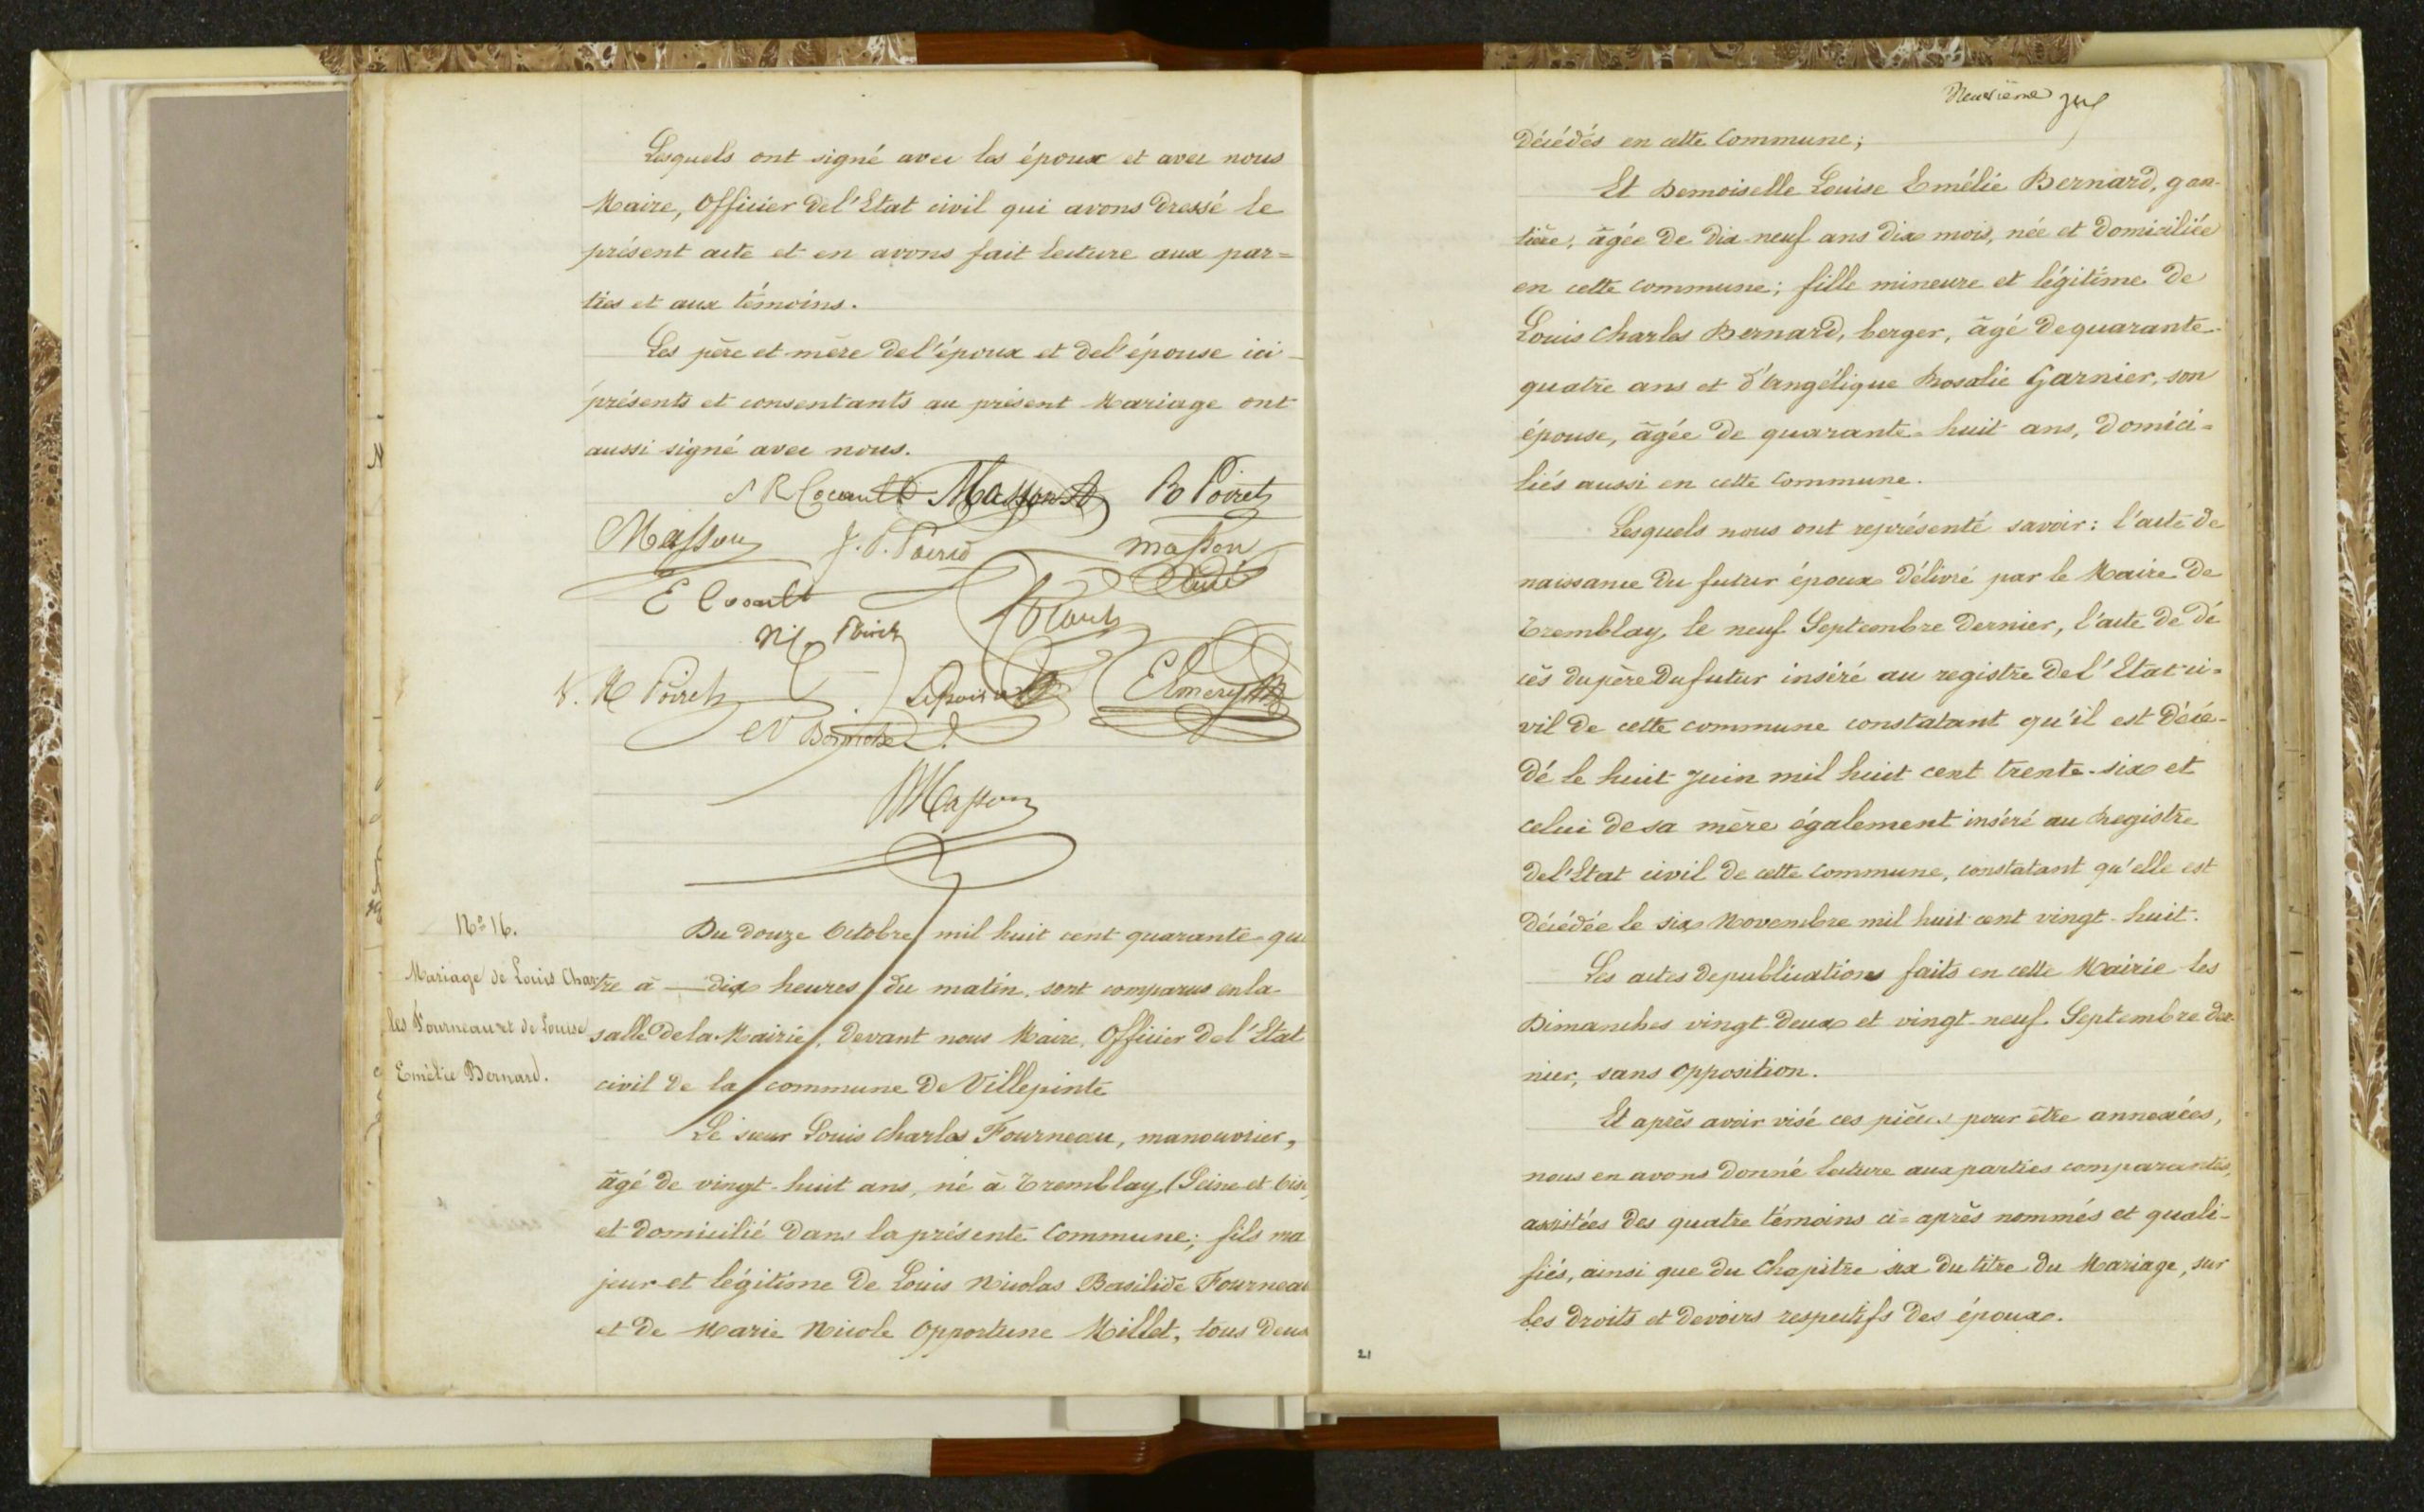 Lesquels ont signé avec les époux et avec nous
Maire, Officier de l'Etat civil qui avons dressé le
présent acte et en avons fait lecture aux par=
ties et aux témoins.
Les père et mère de l'époux et de l'épouse ici
présents et consentants au présent Mariage ont
aussi signé avec nous.
Masson R Poiret
Masson masson
Poiret
Poiret
Masson
No 16.
Mariage de Louis Char
les Fourneau et de Louise
Emélie Bernard.
Du douze Octobre mil huit cent quarante-qua
tre à — dix heures du matin, sont comparus en la
salle de la Mairie, devant nous Maire, Officier de l'Etat
civil de la commune de Villepinte
Le sieur Louis Charles Fourneau, manouvrier,
âgé de vingt-huit ans, né à Tremblay (Seine et Oise
et domicilié dans la présente Commune; fils ma
jeur et légitime de Louis Nicolas Basilide Fourneau
et de Marie Nicole Opportune Millet, tous deux
Neuvième
décédés en cette Commune;
Et Demoiselle Louise Emélie Bernard, gan-
tière, âgée de dix-neuf ans dix mois, née et domiciliée
en cette commune; fille mineure et légitime de
Louis Charles Bernard, berger, âgé de quarante-
quatre ans et d'Angélique Rosalie Garnier, son
épouse, âgée de quarante-huit ans, domici=
liés aussi en cette Commune.
Lesquels nous ont représenté savoir: l'acte de
naissance du futur époux délivré par le Maire de
Tremblay, le neuf Septembre dernier, l'acte de dé
cès du père du futur inséré au registre de l'Etat ci=
vil de cette commune constatant qu'il est décé-
dé le huit Juin mil huit cent trente-six et
celui de sa mère également inséré au Registre
de l'Etat civil de cette Commune, constatant qu'elle est
décédée le six Novembre mil huit cent vingt-huit.
Les actes de publications faits en cette Mairie les
Dimanches vingt-deux et vingt-neuf Septembre der-
nier, sans opposition.
Et après avoir visé ces pièces pour être annexées,
nous en avons donné lecture aux parties comparantes,
assistées des quatre témoins ci=après nommés et quali-
fiés, ainsi que du Chapitre six du titre du Mariage, sur
les droits et devoirs respectifs des époux.
21